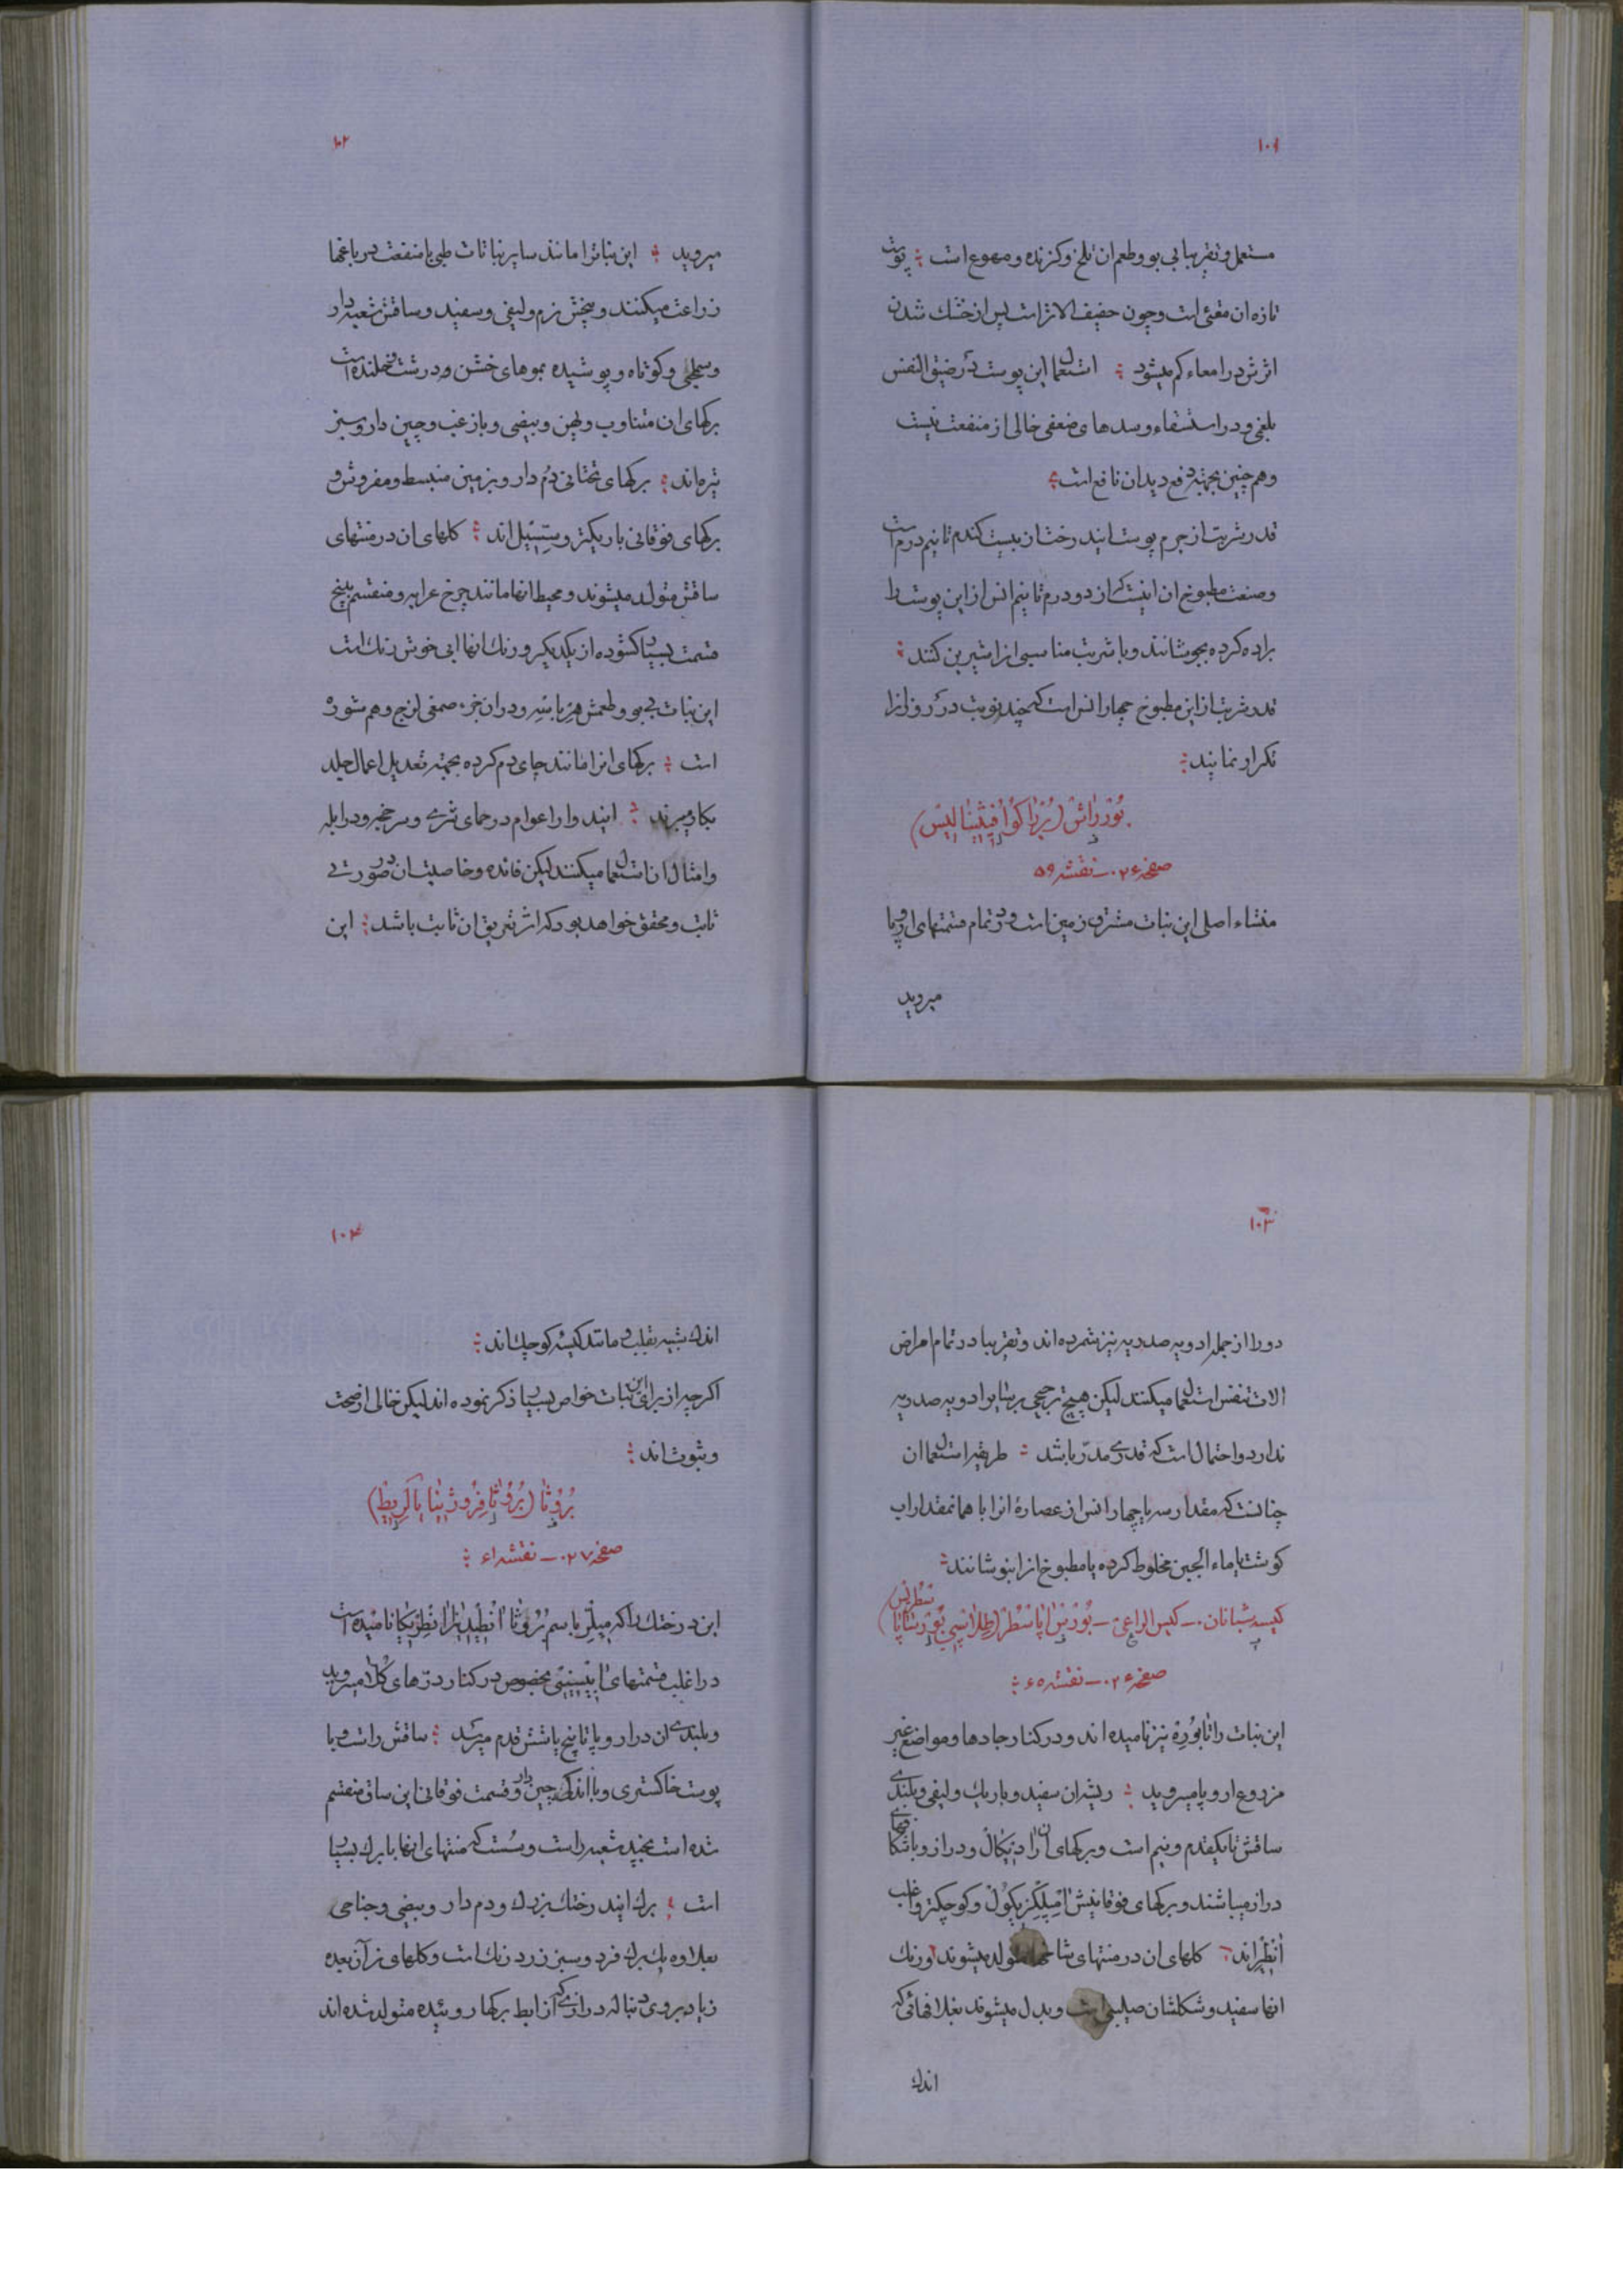 ۱۰۱
مستعمل و تقریبا بی بو و طعم ان تلخ و کزنده و مهوع است پوست
تازه ان مقئی است و چون خفیف الاثر است پس از خشک شدن
اثرش در امعاء کم میشود استعمال این پوست در ضیق النفس
بلغمی و در استسقاء و سدهای ضعفی خالی از منفعت نیست
و هم چنین بجهته دفع دیدان نافع است
قدر شربت از جرم پوست ایندرخت از بیست کندم تا نیم درم است
و صنعت مطبوخ ان اینست که از دو درم تا نیم انس از این پوست را
براده کرده بجوشانند و با شربت مناسبی انرا شیرین کنند
قدر شربت از این مطبوخ چهار انس است که چند نوبت در روز انرا
تکرار نمایند
بُوُرْراش (بُرّاكُو اُفِیْثِینَالِیْس)
صفحه ۰۲۶ – نقشه ۵۹
منشاء اصلی این نبات مشرق زمین است و در تمام قسمتهای اروپا
میروید
۱۰۲
میروید این نباترا مانند سایر نباتات طبی با منفعت در باغها
زراعت میکنند و بیخش نرم و لیفی و سفید و ساقش شعبه دار
و سطحی و کوتاه و پوشیده بموهای خشن و درشت و خلنده است
برکهای ان متناوب و پهن و بیضی و با زغب و چین دار و سبز
تیره اند برکهای تحتانی دُم دار و بزمین منبسط و مفروش و
برکهای فوقانی باریکتر و سِسّیل اند کلهای ان در منتهای
ساقش متولد میشوند و محیط انها مانند چرخ عرابه و منقسم بپنج
قسمت بسیار کشوده از یکدیکر و رنك انها ابی خوش رنك است
این نبات بی بو و طعمش هرّبَاسِه و در ان جزء صمغی لزج و هم شوره
است برکهای انرا مانند چای دم کرده بجهته تعدیل اعمال جلد
بکار میبرند ایندوا را عوام در حمای نزلی و سرخجه و در ابله
و امثال ان استعمال میکنند لیکن فائده و خاصیت ان در صورتی
ثابت و محقق خواهد بود که اثر تعریق ان ثابت باشد این
۱۰۳
دوا را از جمله ادویه صدریه نیز شمرده اند و تقریبا در تمام امراض
الات تنفس استعمال میکنند لیکن هیچ ترجیحی بر سایر ادویه صدریه
ندارد و احتمال است که قدری مدرّ باشد طریقه استعمال ان
چنانست که مقدار سه یا چهار انس از عصارهٔ انرا با همانمقدار اب
کوشت یا ماء الجبن مخلوط کرده یا مطبوخ انرا بنوشانند
کیسه شبانان – کیس الراعی – بُوُرْس اَپاسْطُرْ (طِلاَسْپِی بُوُرْسَا پَاسْطُرِیْس)
صفحه ۰۲۶ – نقشه ۶۵
این نبات را تَابُوُرِه نیز نامیده اند و در کنار جادها و مواضع غیر
مزروع اروپا میروید ریشه ان سفید و باریك و لیفی و بلندی
ساقش تا یکقدم و نیم است و برکهای ان رَادیِکَالْ و دراز و با شکافهای
دراز میباشند و برکهای فوقانیش اَمْپلِکْزیِکُولْ و کوچکتر و اغلب
اَنْطِیِراند کلهای ان در منتهای شاخها متولد میشوند و رنك
انها سفید و شکلشان صلیبی است و بدل میشوند بغلافهائی که
اندك
۱۰۴
اندك شبیه بقلب و مانند کیسه کوچك اند
اکر چه از برای این نبات خواص بسیار ذکر نموده اند لیکن خالی از صحت
و ثبوت اند
بُرُوُثَا (بُرُوُثَا فِرُوژیِنَا پَاكَرِیِطِ)
صفحه ۰۲۷ – نقشه ۶۱
این درختك را که مِیِلِّر باسم بُرُوُثَا اَنْطِیْدِیِزَانْطِرِیکَا نامیده است
در اغلب قسمتهای اَبیسینی مخصوص در کنار درّهای کُلاّ میروید
و بلندی ان در اروپا تا پنج یا شش قدم میرسد ساقش راست و با
پوست خاکستری و با اندك چین دار و قسمت فوقانی این ساق منقسم
شده است بچند شعبه راست و سُست که منتهای انها با برك بسیار
است برك ایندرختك بزرك و دم دار و بیضی و جناحی
بعلاوه یك برك فرد و سبز زرد رنك است و کلهای نر ان بعده
زیاد بروی دنباله درازی که از ابط برکها روئیده متولد شده اند